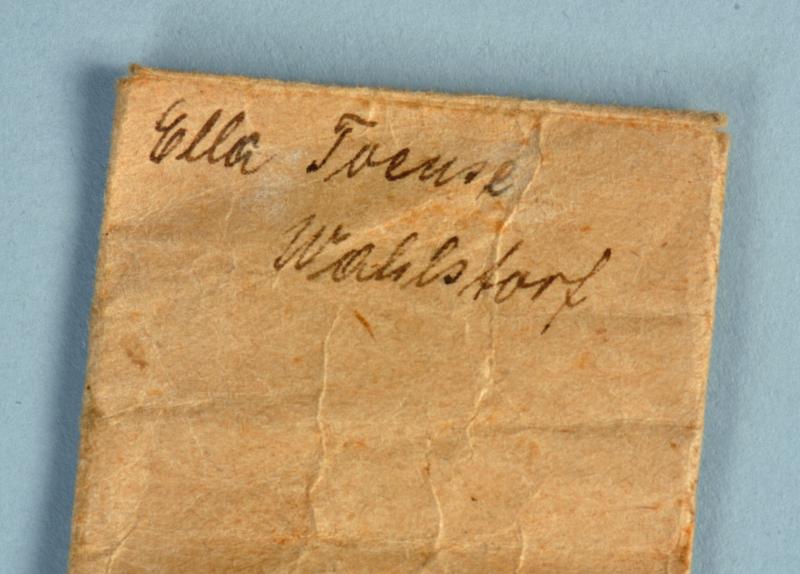 Ella Toense
Wahlstorf